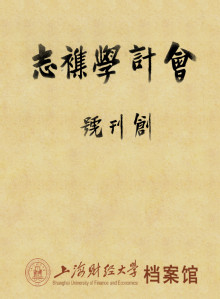 會計學襍志
創刊號
上海财经大学 档案馆
Shanghai University of Finance and Economics